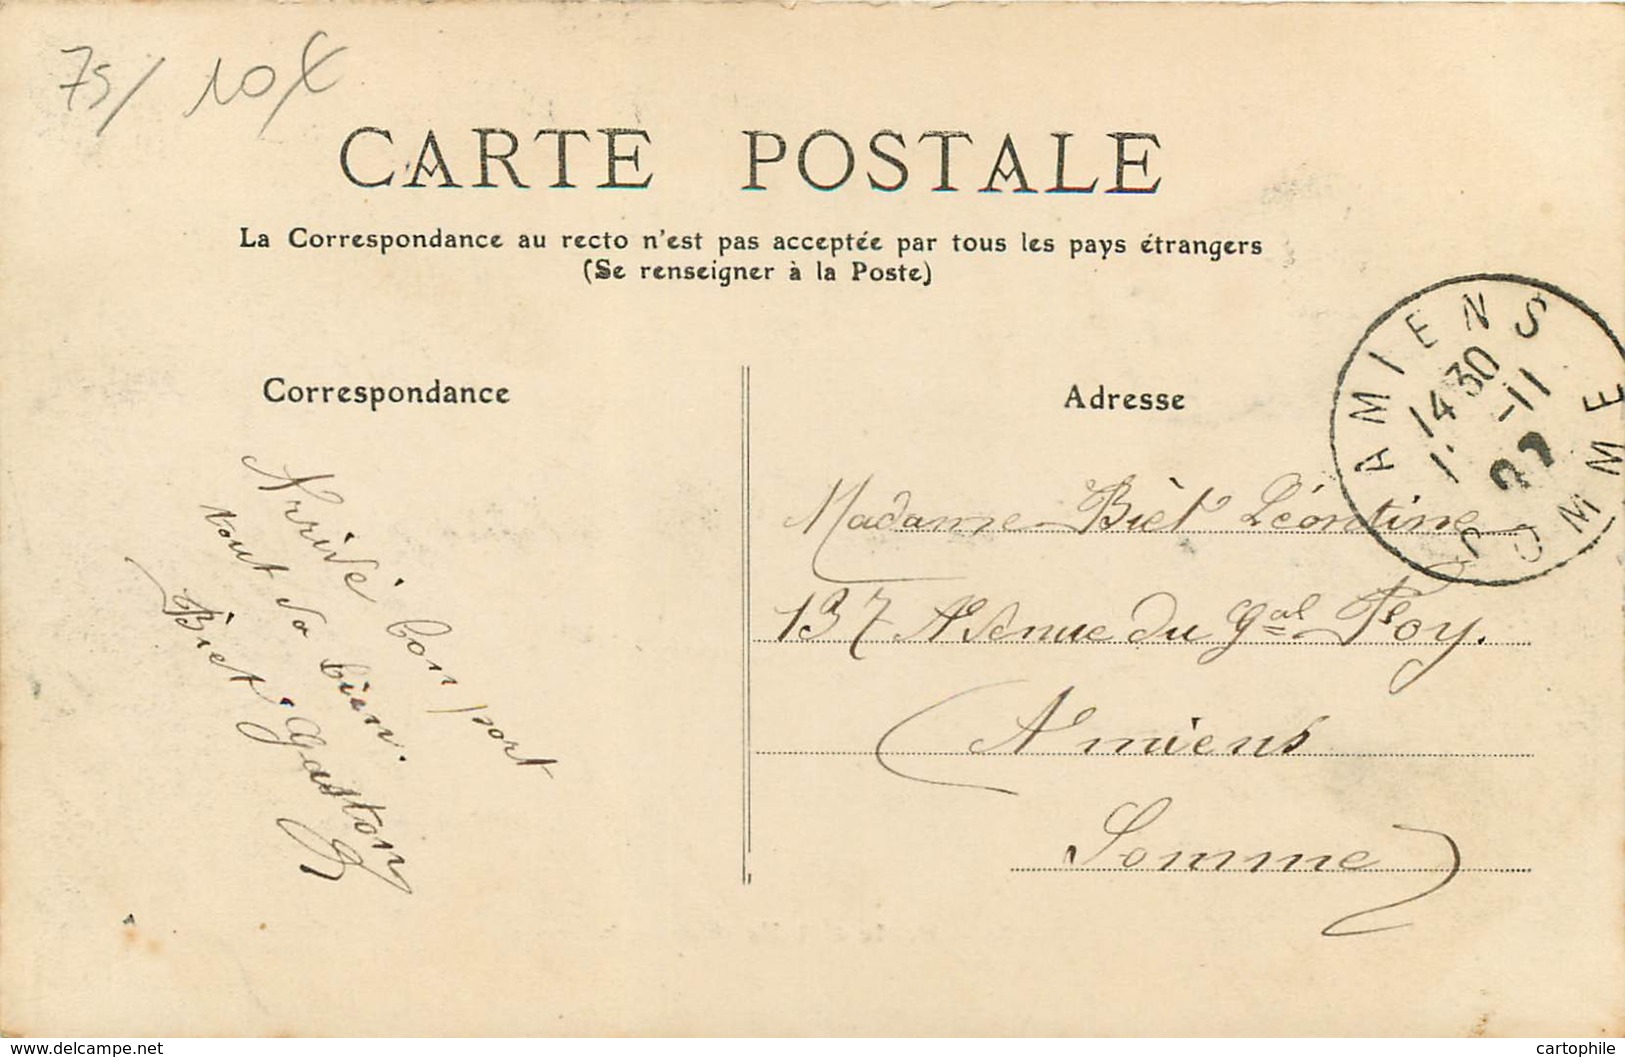 75/ 10€
CARTE POSTALE
La Correspondance au recto n'est pas acceptée par tous les pays étrangers
(Se renseigner à la Poste)
Correspondance
Arrivé bon port
tout va bien.
Biet Gaston
Adresse
AMIENS
14 30
-11
SOMME
Madame Bièt Léontine
137 Avenue du Gal Foy.
Amiens
Somme
www.delcampe.net
cartophile